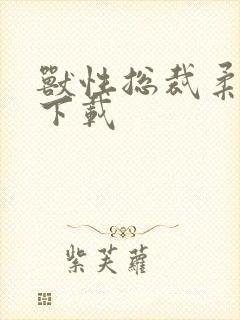 獸性总裁柔
下載
紫芙蘿